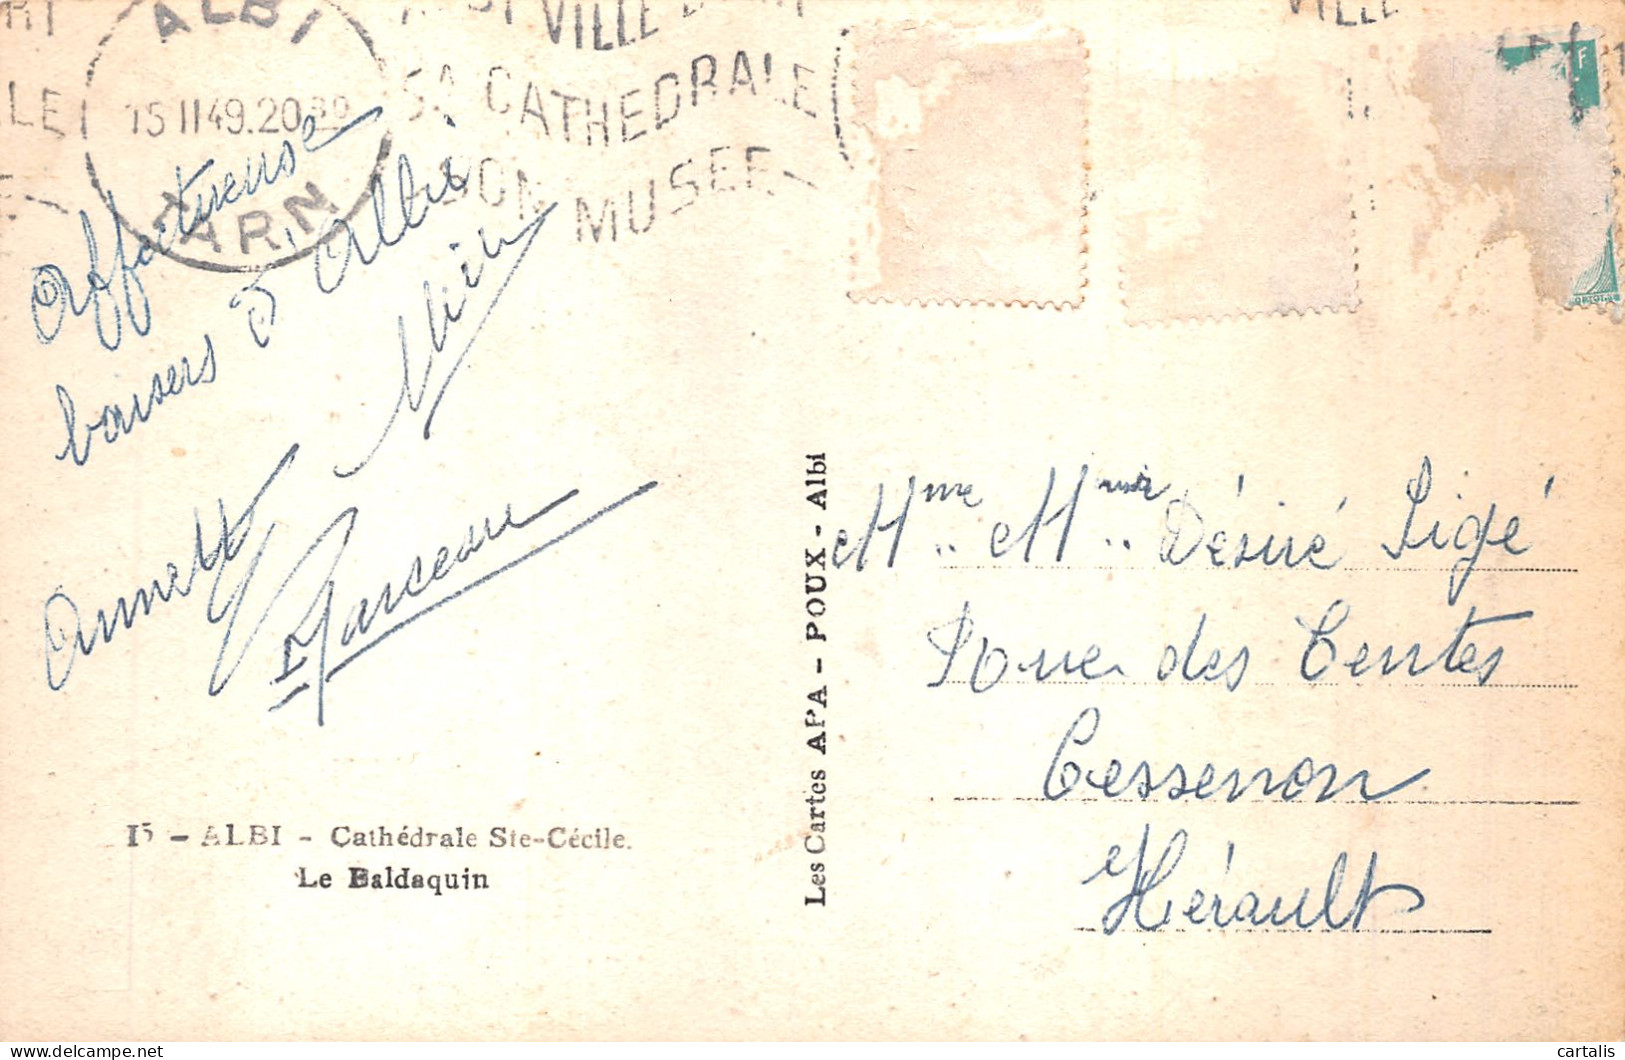 ALBI
15 II 49. 20
TARN
VILLE
SA CATHEDRALE
SON MUSEE
VILLE
Affectueuse
baisers d'Albi
Annette
Marceau
15 - ALBI - Cathédrale Ste-Cécile.
Le Baldaquin
Les Cartes APA - POUX - Albi
Mme .. Mr .. Désiré Pigé
Rue des Tentes
Cessenon
Hérault
cartalis